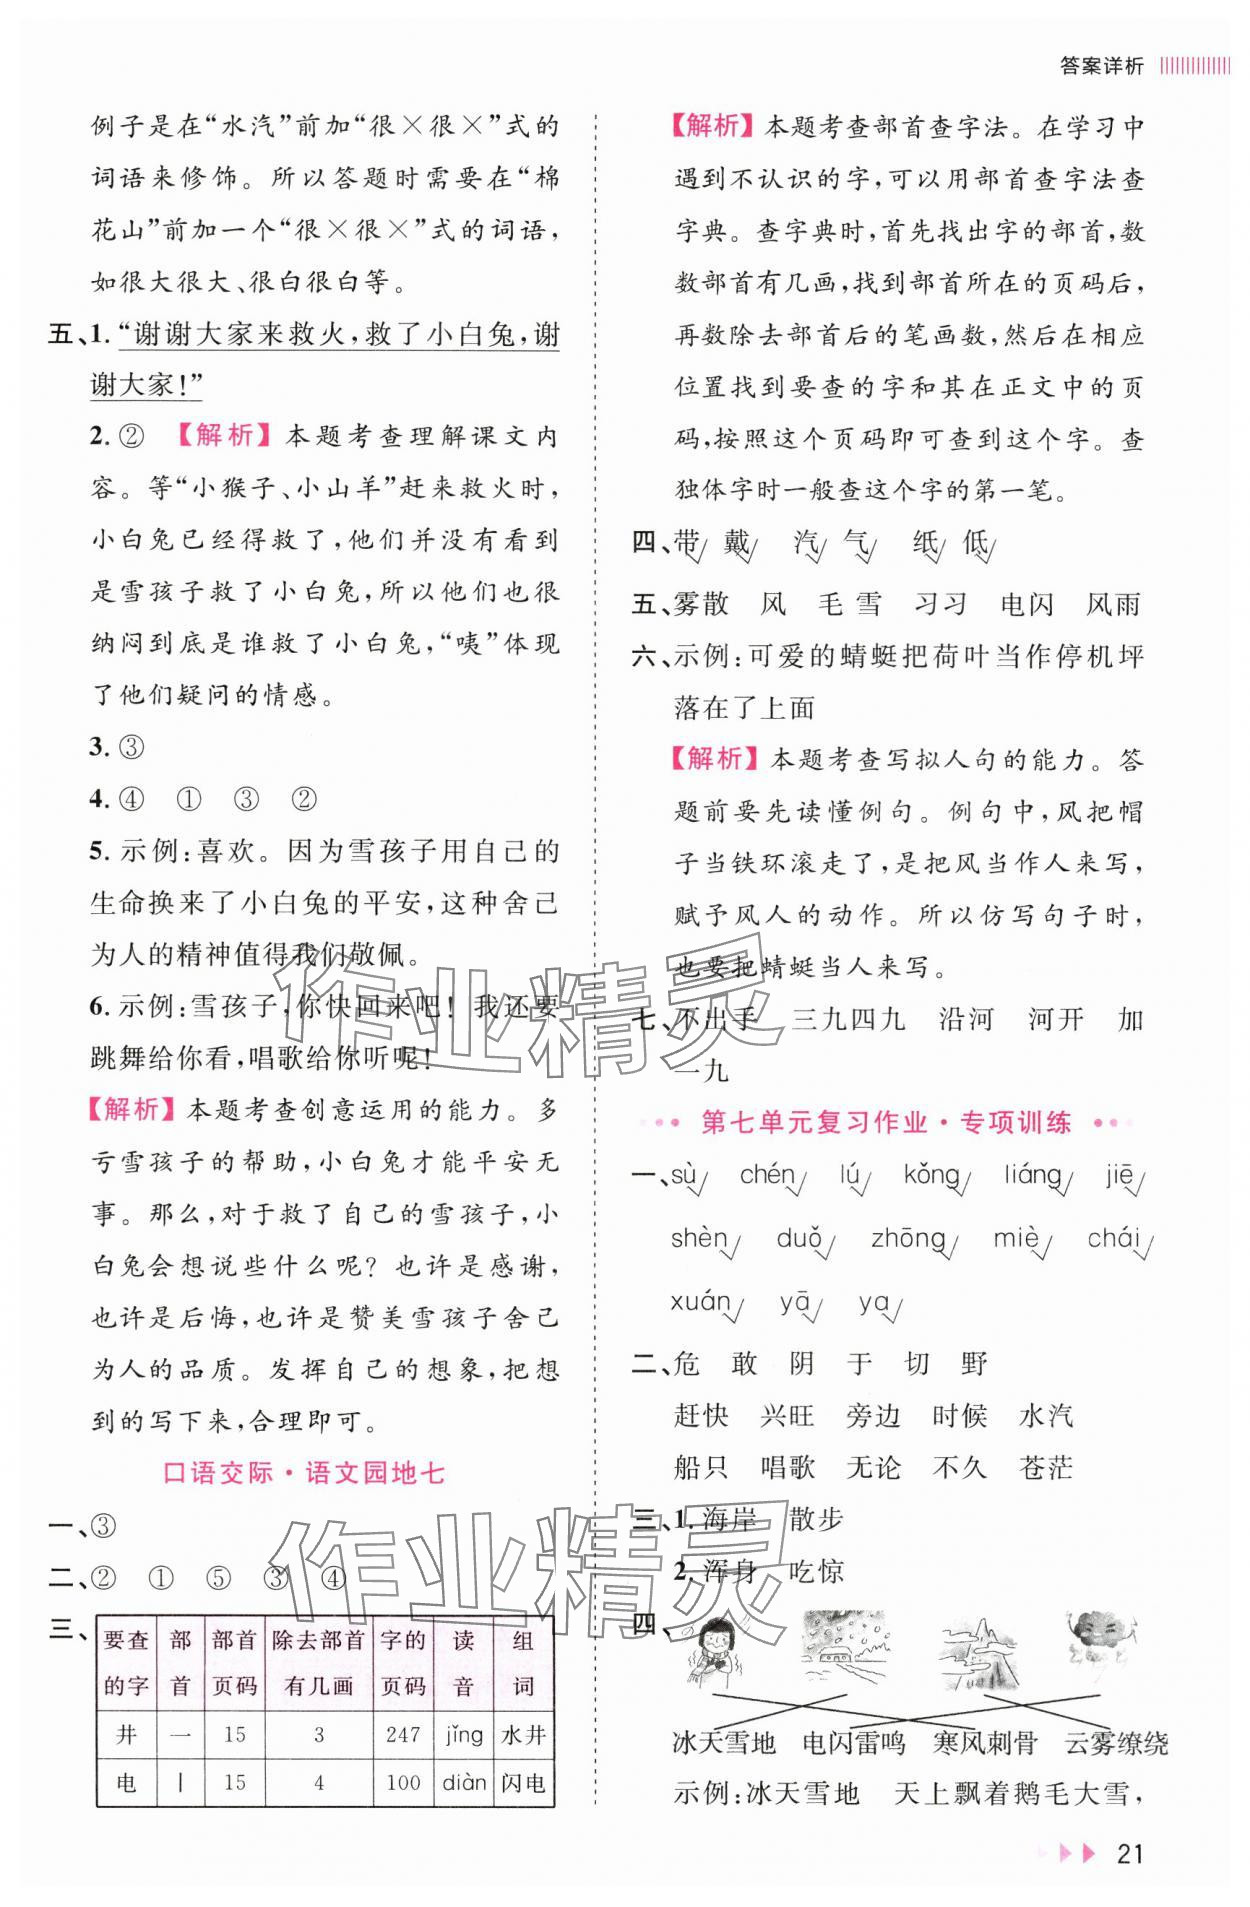 答案详析
例子是在“水汽”前加“很×很×”式的
词语来修饰。所以答题时需要在“棉
花山”前加一个“很×很×”式的词语,
如很大很大、很白很白等。
五、1. “谢谢大家来救火,救了小白兔,谢
谢大家!”
2. ② 【解析】本题考查理解课文内
容。等“小猴子、小山羊”赶来救火时,
小白兔已经得救了,他们并没有看到
是雪孩子救了小白兔,所以他们也很
纳闷到底是谁救了小白兔,“咦”体现
了他们疑问的情感。
3. ③
4. ④ ① ③ ②
5. 示例:喜欢。因为雪孩子用自己的
生命换来了小白兔的平安,这种舍己
为人的精神值得我们敬佩。
6. 示例:雪孩子,你快回来吧!我还要
跳舞给你看,唱歌给你听呢!
【解析】本题考查创意运用的能力。多
亏雪孩子的帮助,小白兔才能平安无
事。那么,对于救了自己的雪孩子,小
白兔会想说些什么呢?也许是感谢,
也许是后悔,也许是赞美雪孩子舍己
为人的品质。发挥自己的想象,把想
到的写下来,合理即可。
口语交际·语文园地七
一、③
二、② ① ⑤ ③ ④
三、
要查的字 部首 部首页码 除去部首有几画 字的页码 读音 组词
井 一 15 3 247 jǐng 水井
电 丨 15 4 100 diàn 闪电
【解析】本题考查部首查字法。在学习中
遇到不认识的字,可以用部首查字法查
字典。查字典时,首先找出字的部首,数
数部首有几画,找到部首所在的页码后,
再数除去部首后的笔画数,然后在相应
位置找到要查的字和其在正文中的页
码,按照这个页码即可查到这个字。查
独体字时一般查这个字的第一笔。
四、带√ 戴√ 汽√ 气√ 纸√ 低√
五、雾散 风 毛雪 习习 电闪 风雨
六、示例:可爱的蜻蜓把荷叶当作停机坪
落在了上面
【解析】本题考查写拟人句的能力。答
题前要先读懂例句。例句中,风把帽
子当铁环滚走了,是把风当作人来写,
赋予风人的动作。所以仿写句子时,
也要把蜻蜓当人来写。
七、不出手 三九四九 沿河 河开 加
一九
第七单元复习作业·专项训练
一、sù√ chén√ lú√ kǒng√ liáng√ jiē√
shèn√ duǒ√ zhōng√ miè√ chái√
xuán√ yā√ ya√
二、危 敢 阴 于 切 野
赶快 兴旺 旁边 时候 水汽
船只 唱歌 无论 不久 苍茫
三、1. 海岸 散步
2. 浑身 吃惊
四、
冰天雪地 电闪雷鸣 寒风刺骨 云雾缭绕
示例:冰天雪地 天上飘着鹅毛大雪,
21
作业精灵
作业精灵